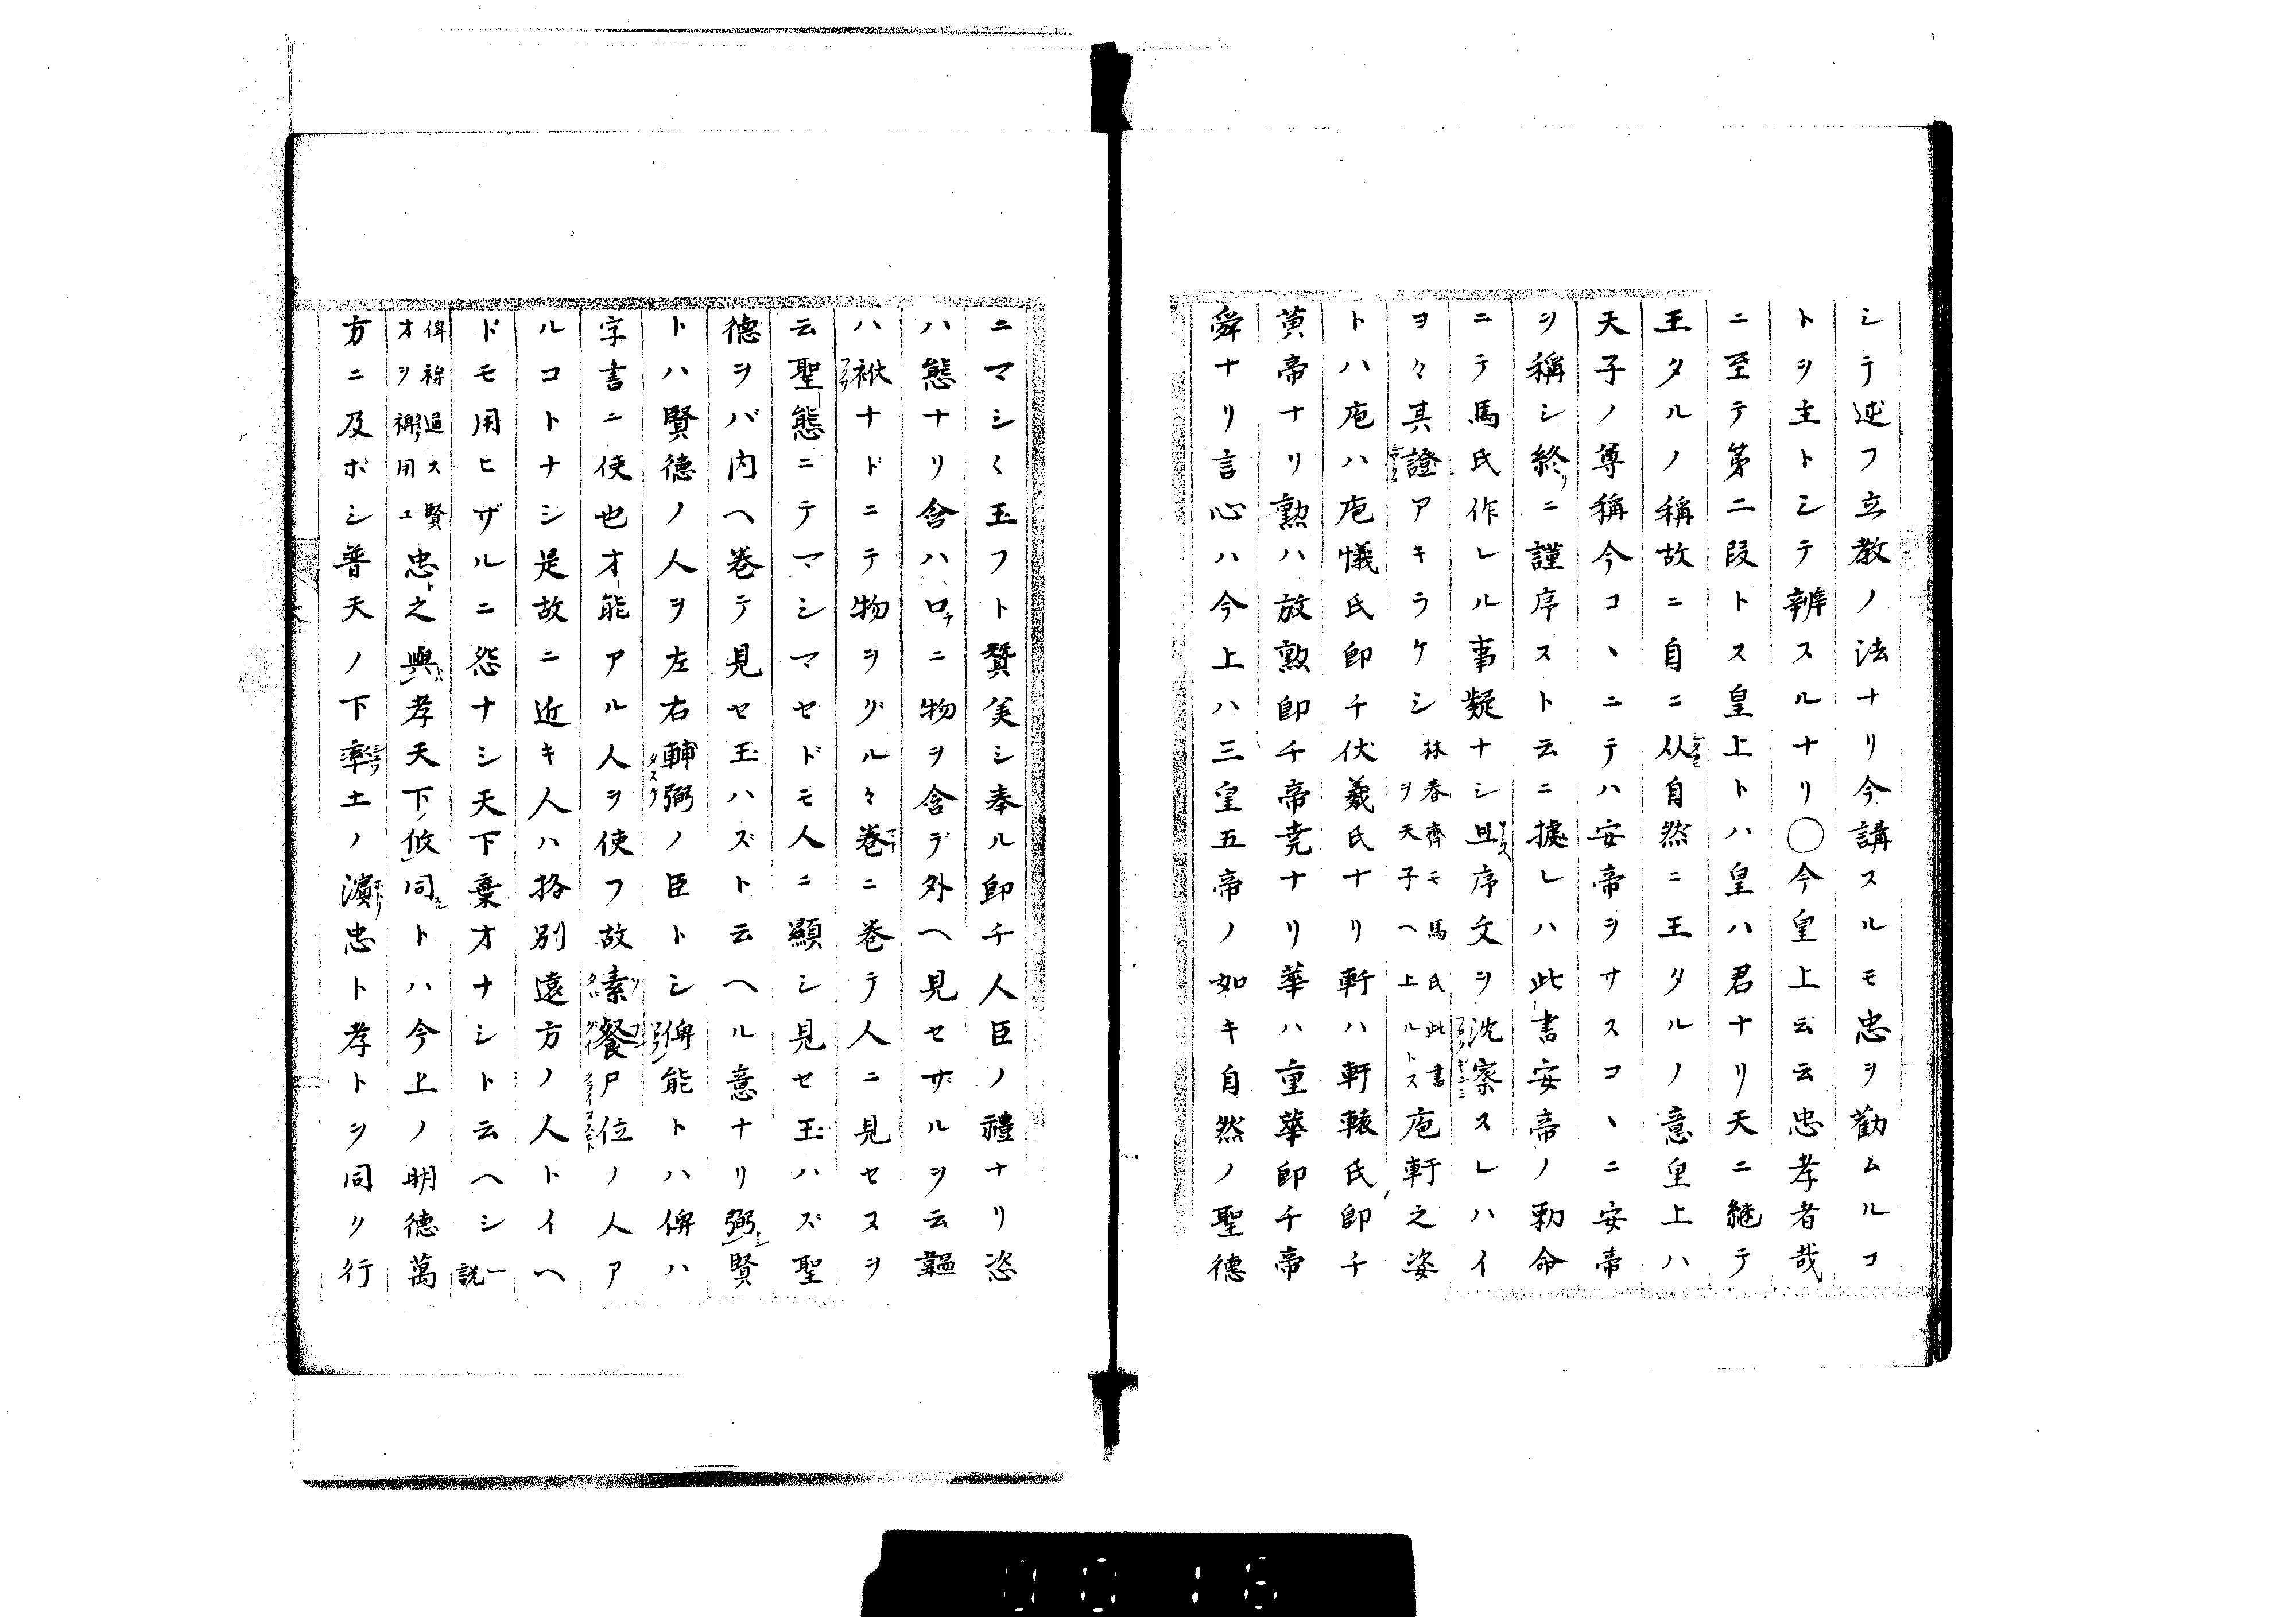 シテ述フ立教ノ法ナリ今講スルモ忠ヲ勸ムルコ
トヲ主トシテ辨スルナリ〇今皇上云云忠孝者哉
ニ至テ第二段トス皇上トハ皇ハ君ナリ天ニ継テ
王タルノ稱故ニ自ニ从自然ニ王タルノ意皇上ハ
天子ノ尊稱今コヽニテハ安帝ヲサスコヽニ安帝
ヲ稱シ終ニ謹序スト云ニ據レハ此書安帝ノ勅命
ニテ馬氏作レル事疑ナシ且序文ヲ沈察スレハイ
ヨ々其證アキラケシ林春齊モ馬氏此書ヲ天子ヘ上ルトス庖軒之姿
トハ庖ハ庖犧氏即チ伏羲氏ナリ軒ハ軒轅氏即チ
黄帝ナリ勲ハ放勲即チ帝尭ナリ華ハ重華即チ帝
舜ナリ言心ハ今上ハ三皇五帝ノ如キ自然ノ聖德
ニマシ〱玉フト賛美シ奉ル即チ人臣ノ禮ナリ恣
ハ態ナリ含ハ口ニ物ヲ含デ外ヘ見セザルヲ云韞
ハ袱ナドニテ物ヲグル々巻ニ巻テ人ニ見セヌヲ
云聖態ニテマシマセドモ人ニ顯シ見セ玉ハズ聖
德ヲバ内ヘ巻テ見セ玉ハズト云ヘル意ナリ弼賢
トハ賢德ノ人ヲ左右輔弼ノ臣トシ俾能トハ俾ハ
字書ニ使也才能アル人ヲ使フ故素餐尸位ノ人ア
ルコトナシ是故ニ近キ人ハ格別遠方ノ人トイヘ
ドモ用ヒザルニ怨ナシ天下棄才ナシト云ヘシ一説
俾裨通ス賢才ヲ裨用ユ忠之與孝天下攸同トハ今上ノ明德萬
方ニ及ボシ普天ノ下率土ノ濵忠ト孝トヲ同ク行
0016